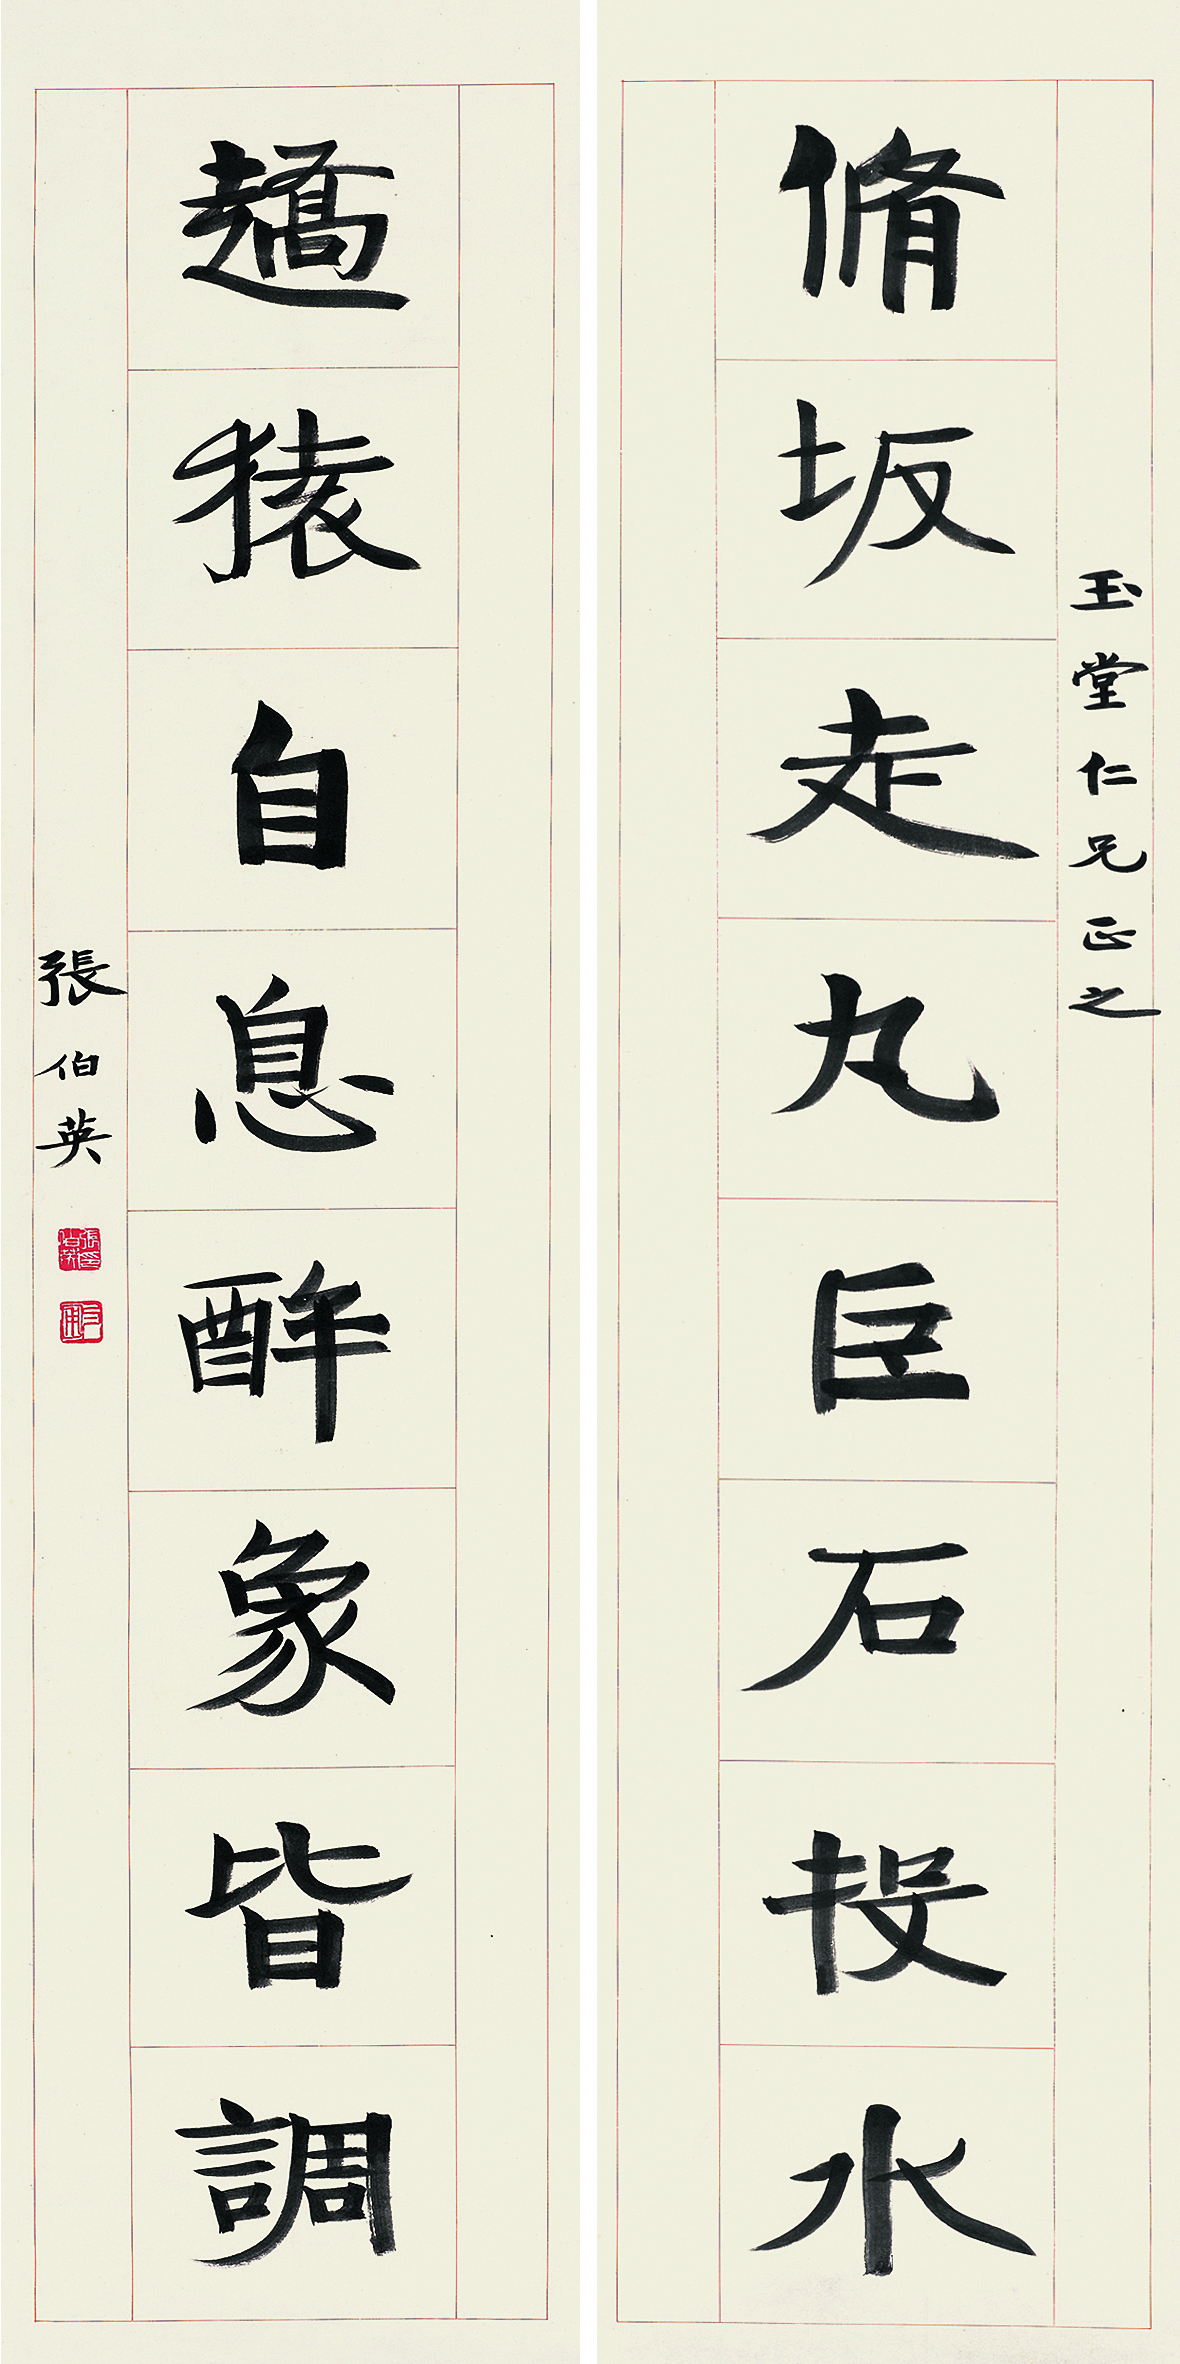 玉堂仁兄正之
脩坂走丸巨石投水
趫猿自息醉象皆調
張伯英